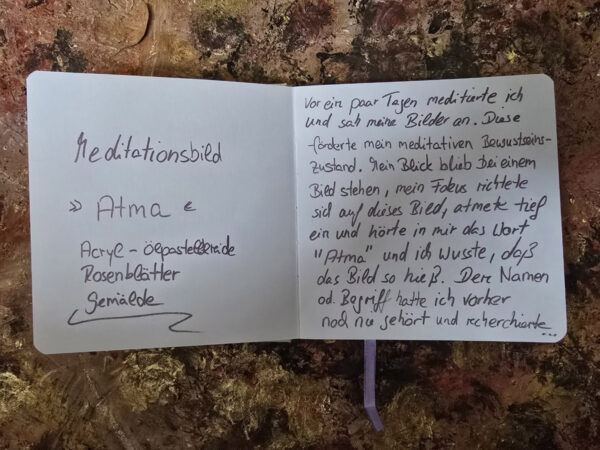 Meditationsbild
» Atma «
Acryl - Ölpastellkreide
Rosenblätter
Gemälde
Vor ein paar Tagen meditierte ich
und sah meine Bilder an. Diese
förderte mein meditativen Bewustseins-
zustand. Mein Blick blieb bei einem
Bild stehen, mein Fokus richtete
sich auf dieses Bild, atmete tief
ein und hörte in mir das Wort
"Atma" und ich wusste, daß
das Bild so hieß. Den Namen
od. Begriff hatte ich vorher
noch nie gehört und recherchierte
...